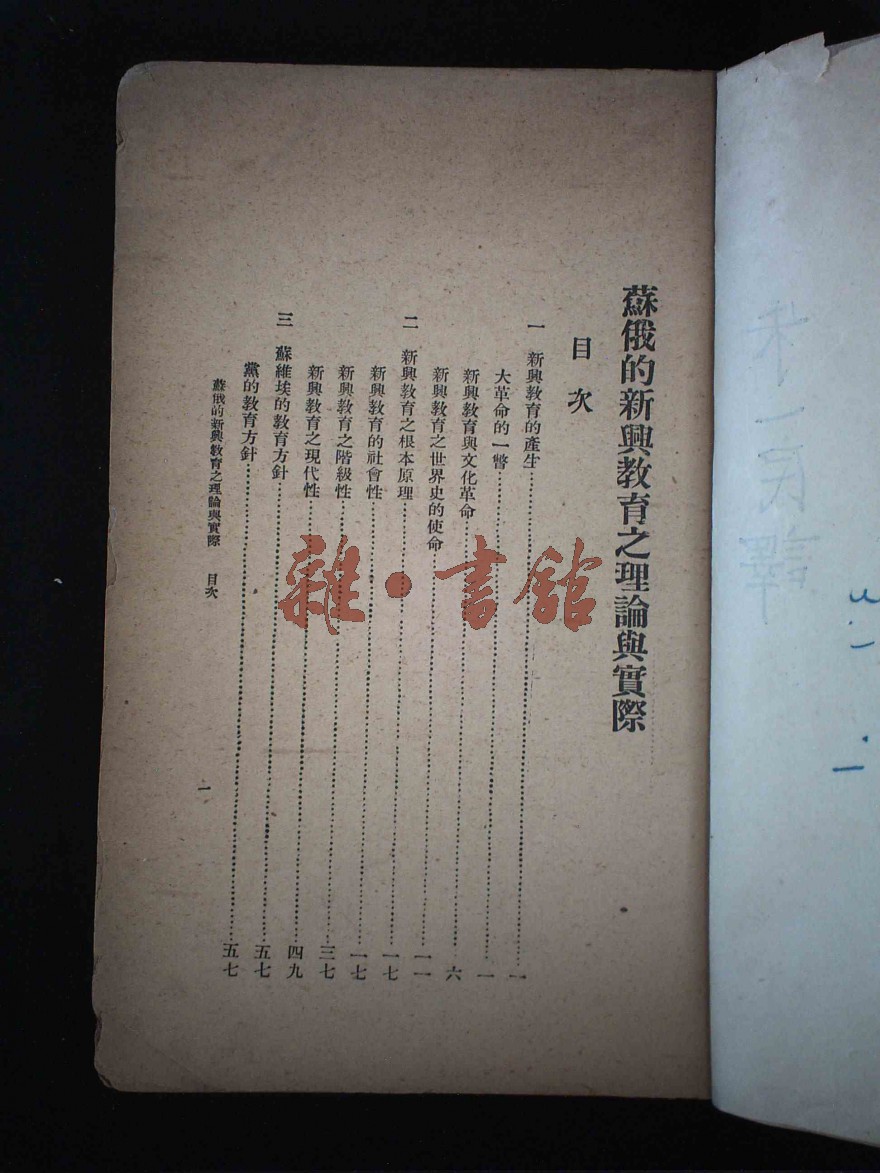 蘇俄的新興教育之理論與實際
目次
一 新興教育的產生……一
大革命的一瞥……一
新興教育與文化革命……六
新興教育之世界史的使命……一一
二 新興教育之根本原理……一七
新興教育的社會性……一七
新興教育之階級性……三七
新興教育之現代性……四九
三 蘇維埃的教育方針……五七
黨的教育方針……五七
蘇俄的新興教育之理論與實際 目次
一
雜·書館